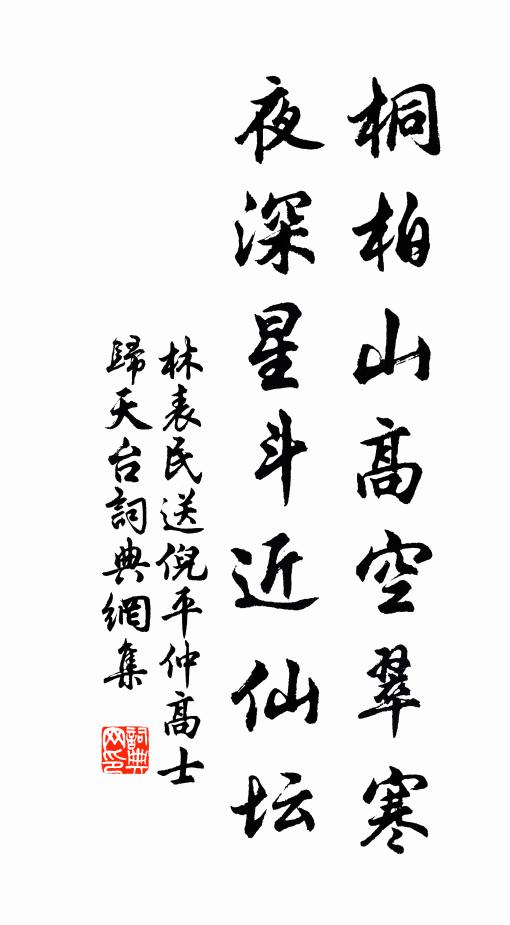 桐柏山高空翠寒
夜深星斗近仙坛
林表民送倪平仲高士
歸天台詞典網集
詞典
网印